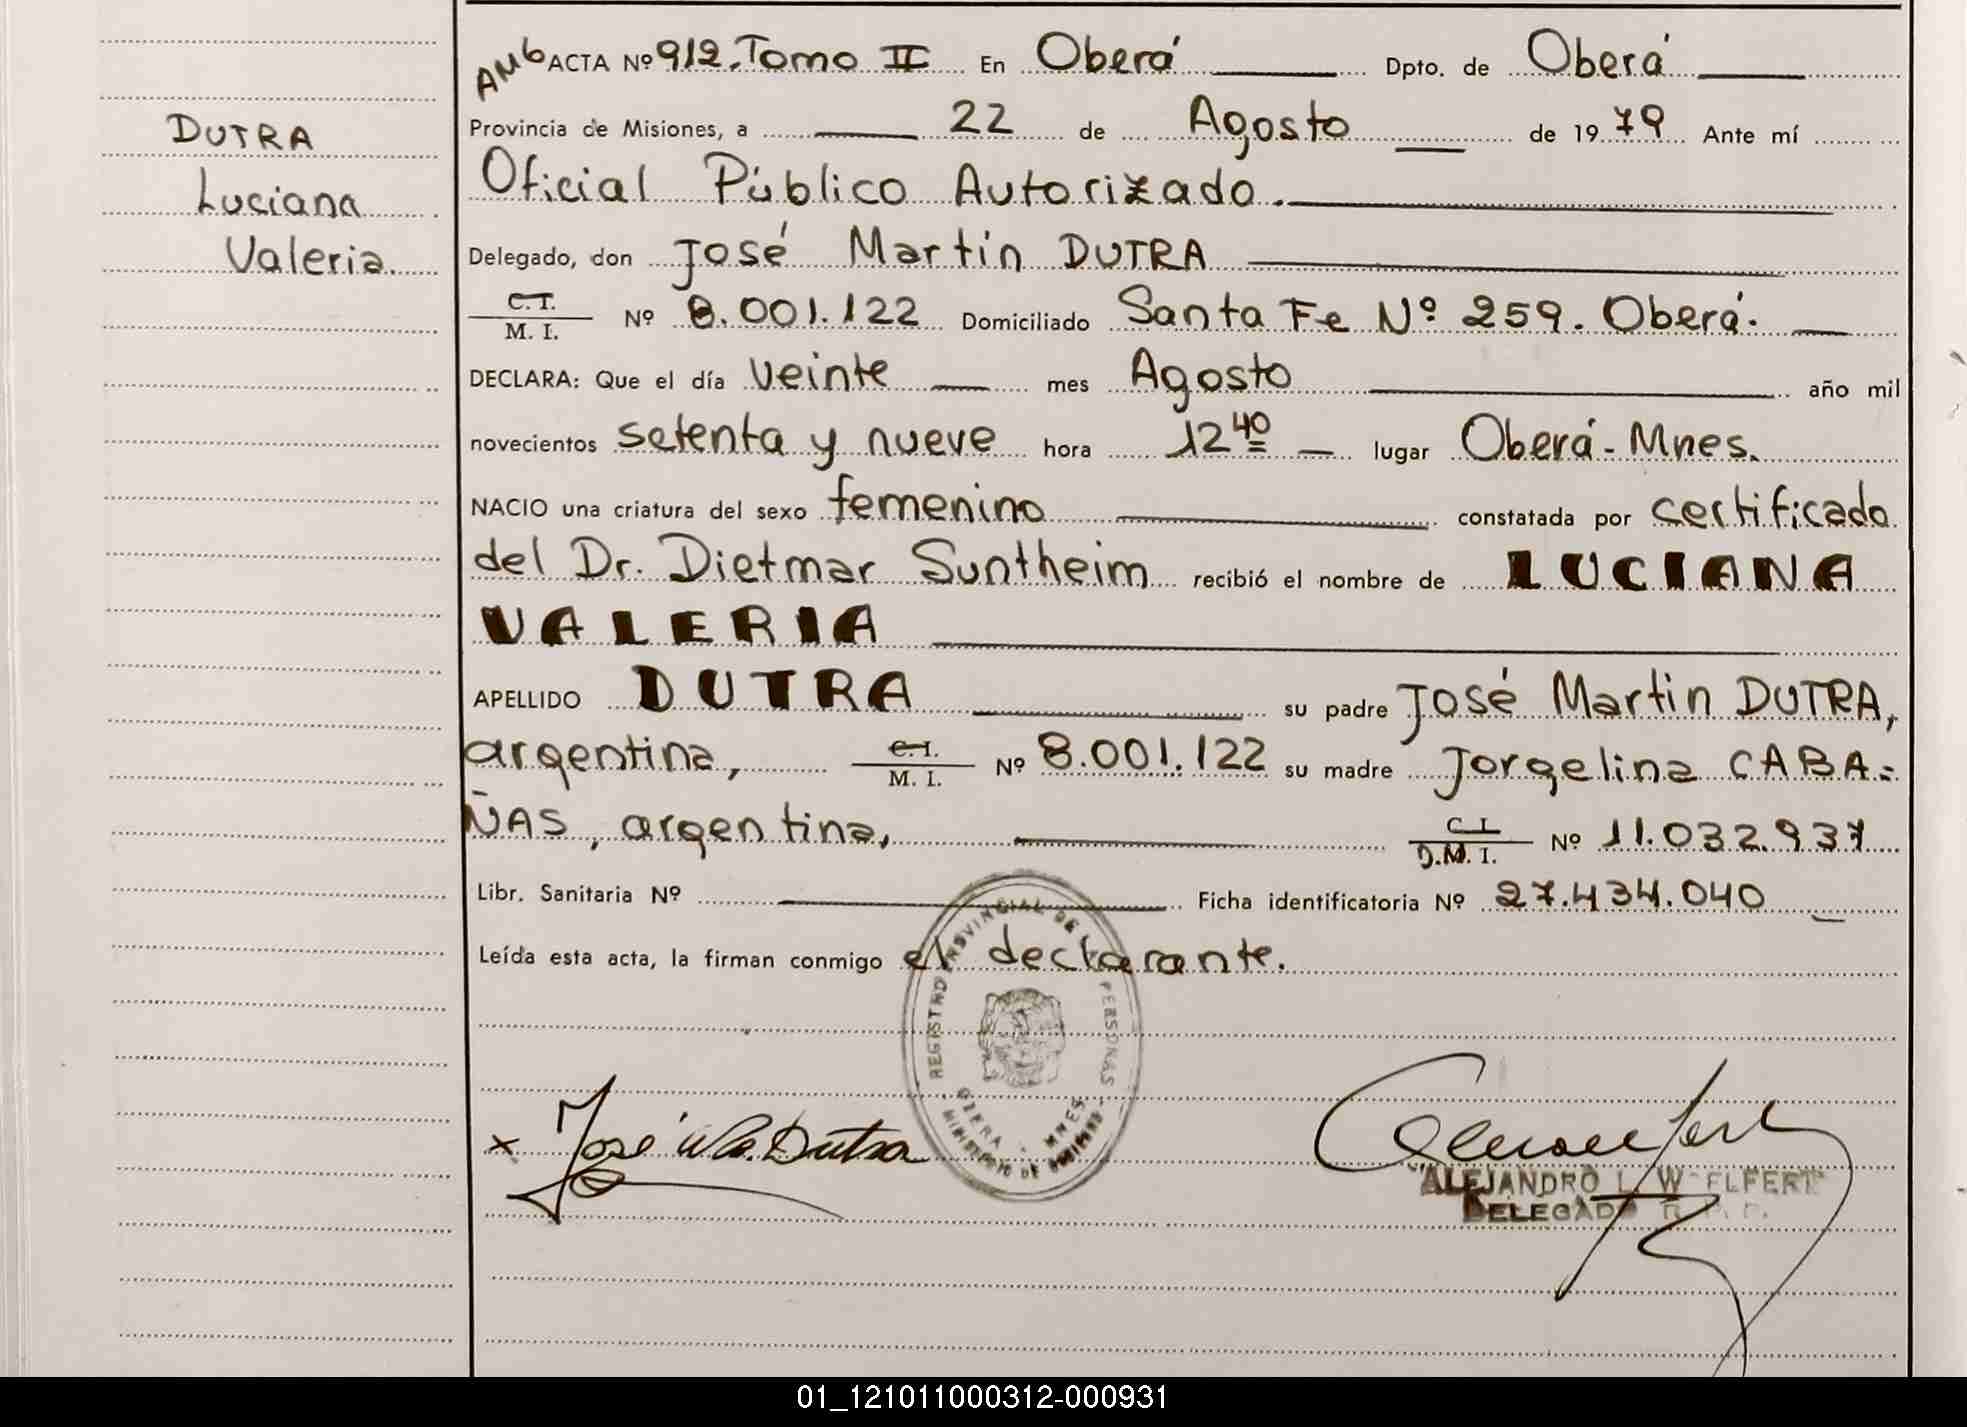 DUTRA
Luciana
Valeria.
AMb ACTA Nº 912. Tomo II En Oberá Dpto. de Oberá
Provincia de Misiones, a 22 de Agosto de 1979 Ante mí
Oficial Público Autorizado.
Delegado, don José Martin DUTRA
C.I. M. I. Nº 8.001.122 Domiciliado Santa Fe Nº 259. Oberá.
DECLARA: Que el día veinte mes Agosto año mil
novecientos setenta y nueve hora 12 40 lugar Oberá-Mnes.
NACIO una criatura del sexo femenino constatada por certificado
del Dr. Dietmar Suntheim recibió el nombre de LUCIANA
VALERIA
APELLIDO DUTRA su padre José Martin DUTRA,
argentina, C.I. M. I. Nº 8.001.122 su madre Jorgelina CABA=
ÑAS, argentina, C I. D.M. I. Nº 11.032.937
Libr. Sanitaria Nº Ficha identificatoria Nº 27.434.040
Leída esta acta, la firman conmigo el declarante.
REGISTRO PROVINCIAL DE PERSONAS
OBERA - MNES.
MINISTERIO DE GOBIERNO
x José Dutra
ALEJANDRO L. WELFERT
DELEGADO R. P. P.
01_121011000312-000931